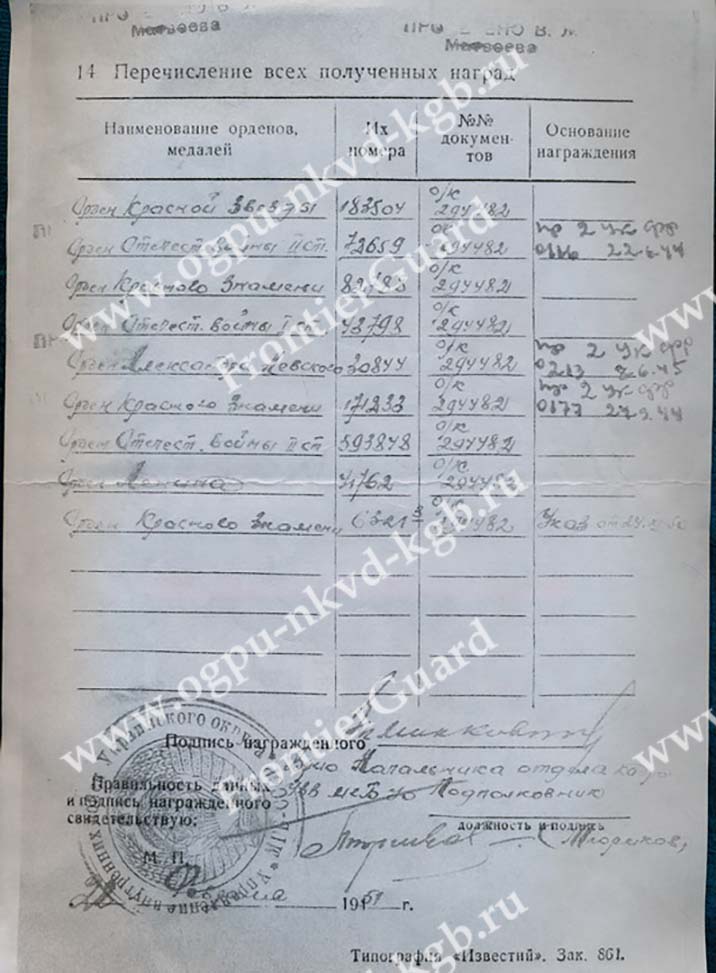 Матвеева
Матвеева
14 Перечисление всех полученных наград
Наименование орденов, медалей
Их номера
№№ документов
Основание награждения
Орден Красной Звезды 183504 о/к 294482
Орден Отечест. Войны II ст. 72659 о/к 294482 пр 2 Укр фр 0116 22-6-44
Орден Красного Знамени о/к 294482
Орден Отечест. войны I ст. 42798 о/к 294482
Орден Александра Невского 30844 о/к 294482 пр 2 Укр фр 0213 6.45
Орден Красного Знамени 171233 о/к 294482 пр 2 Укр фр 0177 44
Орден Отечест. Войны II ст. 593848 о/к 294482
Орден Ленина о/к 294482
Орден Красного Знамени о/к 294482 Указ от
Подпись награжденного
Начальника отдела
Правильность данных и подпись награжденного свидетельствую:
Подполковник
должность и подпись
М. П.
1951 г.
Типография «Известий». Зак. 861.
Украинского округа
Управление внутренних
www.ogpu-nkvd-kgb.ru
FrontierGuard
www.ogpu-nkvd-kgb.ru
FrontierGuard
www.ogpu-nkvd-kgb.ru
www.
www.